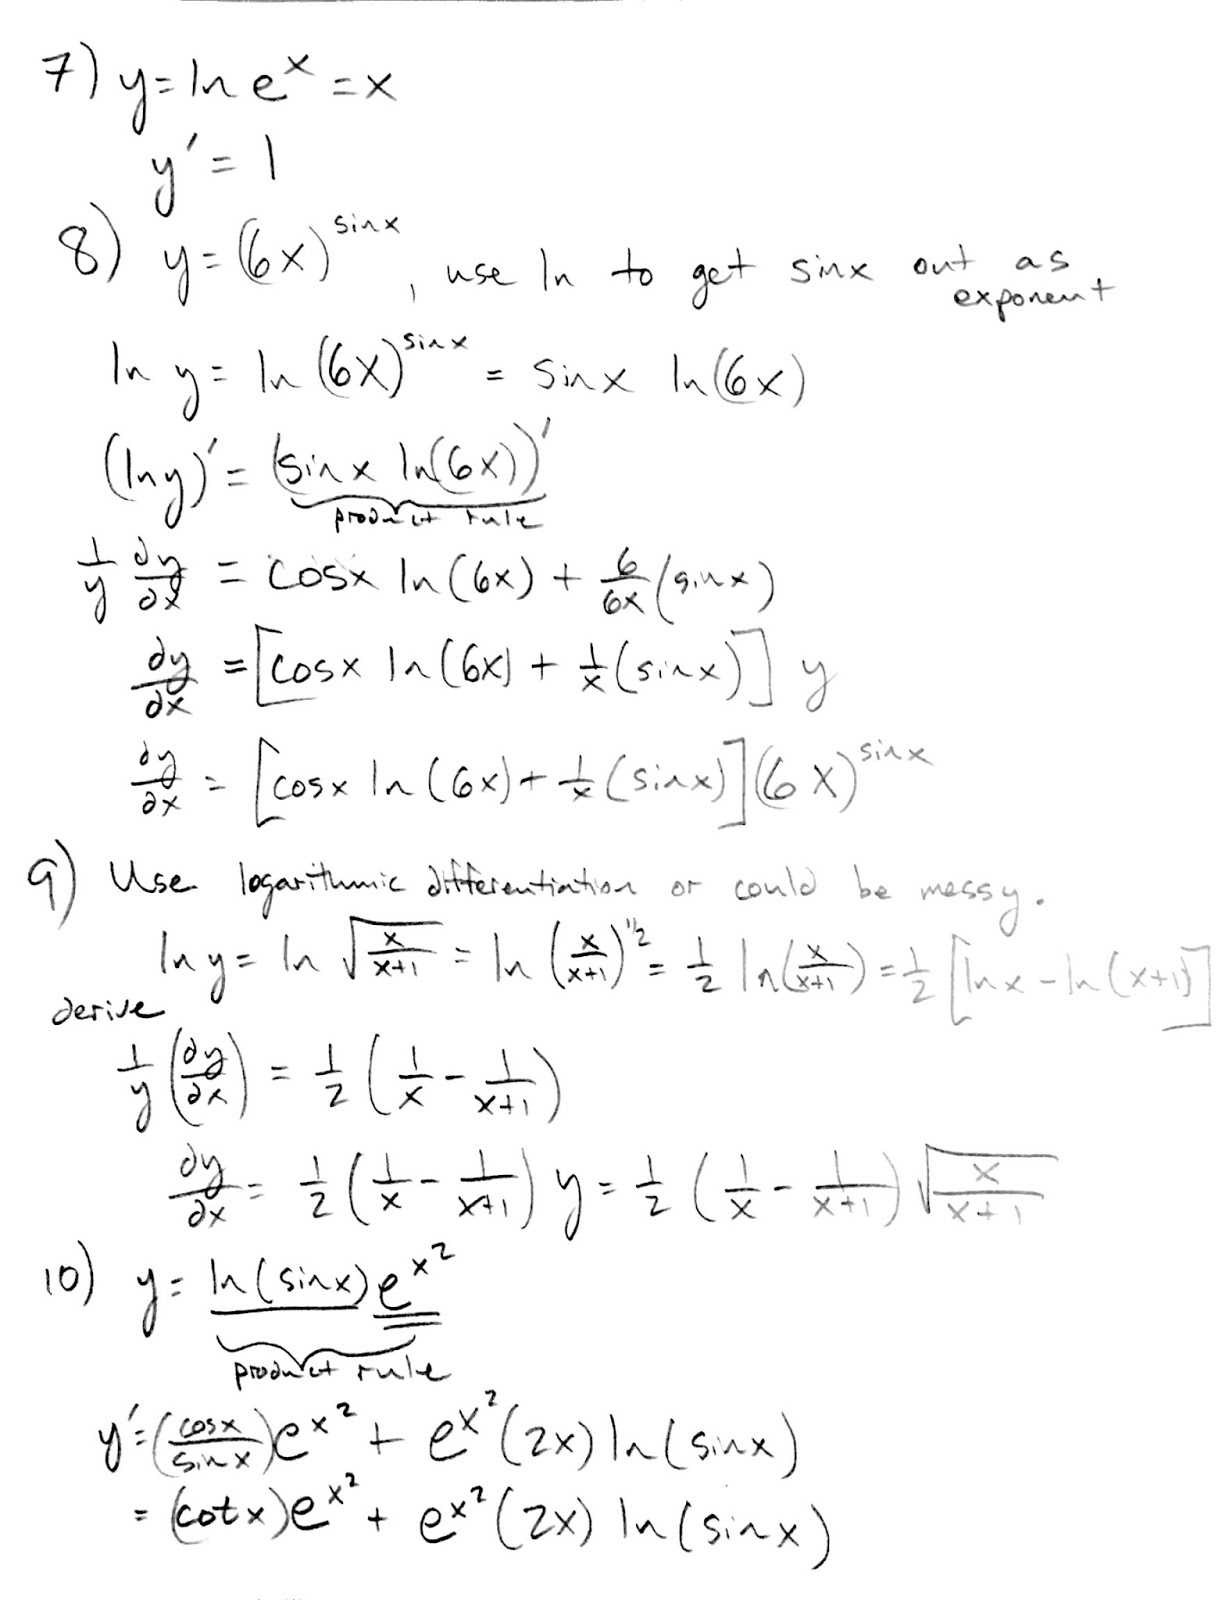 7) y = ln e^x = x
y' = 1
8) y = (6x)^sinx, use ln to get sinx out as exponent
ln y = ln (6x)^sinx = sinx ln(6x)
(ln y)' = (sinx ln(6x))'
product rule
1/y ∂y/∂x = cosx ln(6x) + 6/6x (sinx)
∂y/∂x = [cosx ln(6x) + 1/x (sinx)] y
∂y/∂x = [cosx ln(6x) + 1/x (sinx)] (6x)^sinx
9) Use logarithmic differentiation or could be messy.
ln y = ln √(x/(x+1)) = ln (x/(x+1))^1/2 = 1/2 ln(x/(x+1)) = 1/2 [lnx - ln(x+1)]
derive
1/y (∂y/∂x) = 1/2 (1/x - 1/(x+1))
∂y/∂x = 1/2 (1/x - 1/(x+1)) y = 1/2 (1/x - 1/(x+1)) √(x/(x+1))
10) y = ln(sinx) e^x²
product rule
y' = (cosx/sinx) e^x² + e^x² (2x) ln(sinx)
= (cotx) e^x² + e^x² (2x) ln(sinx)